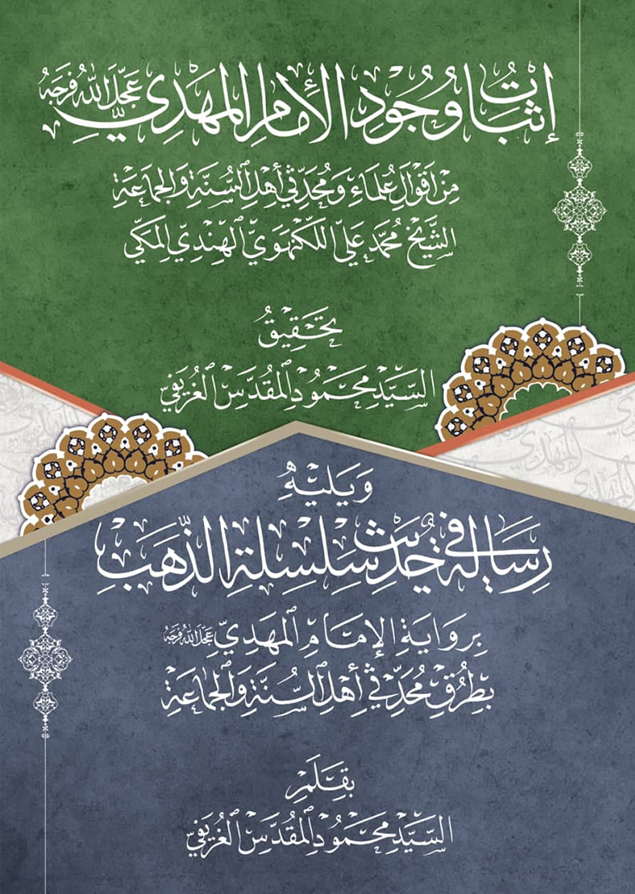 إثبات وجود الإمام المهدي عجل الله فرجه
من أقوال علماء ومحدثي أهل السنة والجماعة
الشيخ محمد علي اللكنهوي الهندي المكي
تحقيق
السيد محمود المقدس الغريفي
ويليه
رسالة في حديث سلسلة الذهب
برواية الإمام المهدي عجل الله فرجه
بطرق محدثي أهل السنة والجماعة
بقلم
السيد محمود المقدس الغريفي